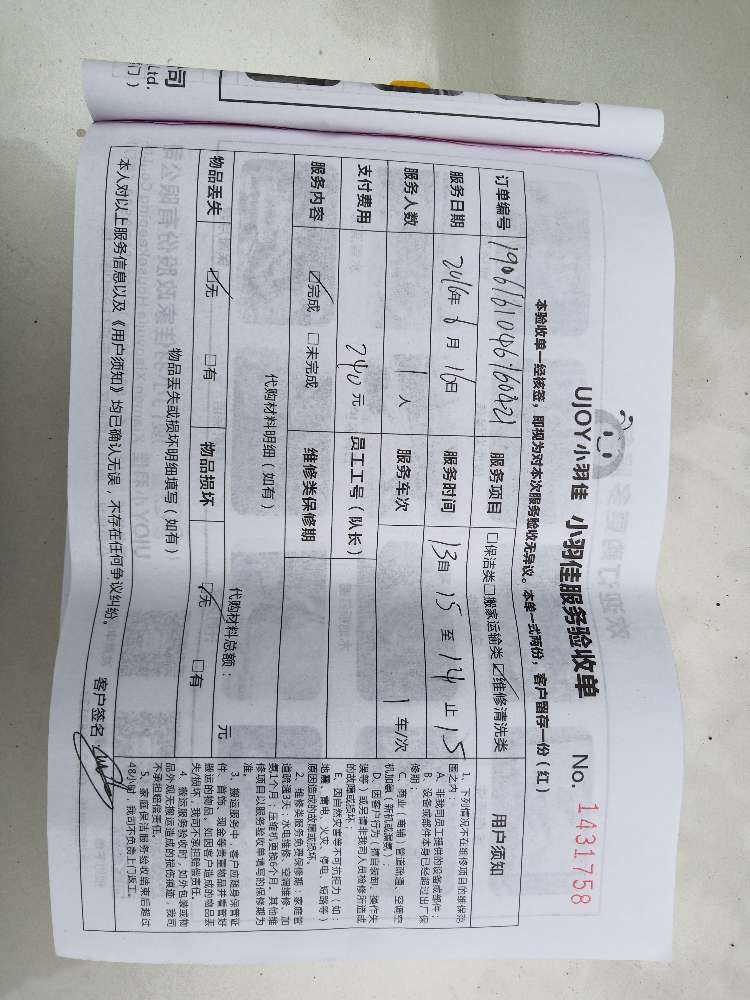 UJOY小羽佳 小羽佳服务验收单 No. 1431758
本验收单一经核签，即视为对本次服务验收无异议。本单一式两份，客户留存一份（红）
订单编号 服务项目 □保洁类□搬家运输类☑维修清洗类
服务日期 6月16日 服务时间 13 自 15 至 14 止 15
服务人数 1 人 服务车次 1 车/次
支付费用 240 元 员工工号（队长）
服务内容 ☑完成 □未完成 维修类保修期
代购材料明细（如有） 代购材料总额： 元
物品丢失 ☑无 □有 物品损坏 ☑无 □有
物品丢失或损坏明细填写（如有）
本人对以上服务信息以及《用户须知》均已确认无误，不存在任何争议纠纷。
客户签名
用户须知
1、下列情况不在维修项目的维保范
围之内：
A、非我司员工提供的设备或部件；
B、设备或部件本身已经超过出厂保
修期；
C、商业（商铺）管道疏通、空调空
机加氨（新机或漏氨）；
D、因客户行为（擅自装卸、操作失
误等）或另请非我司人员检修所造成
的故障或损坏
E、因自然灾害等不可抗拒力（如：
地震、雷电、火灾、停电、短路等）
原因造成的故障或损坏。
2、维修类服务免费保修期：家庭管
道疏通3天；水电维修、空调维修、加
氨1个月；压缩机更换6个月。其他维
修项目以服务验收单填写的保修期为
准。
3、搬运服务中，客户应随身保管证
件、首饰、现金等贵重物品并看管好
搬运的物品，如因客户造成的物品丢
失/损坏，我司不承担赔偿责任。
4、搬运服务验收时，如外包装或物
品外观无搬运造成的损伤痕迹，我司
不承担赔偿责任。
5、家庭保洁服务验收结束后超过
48小时，我司不负责上门返工。
司
Ltd.
门）